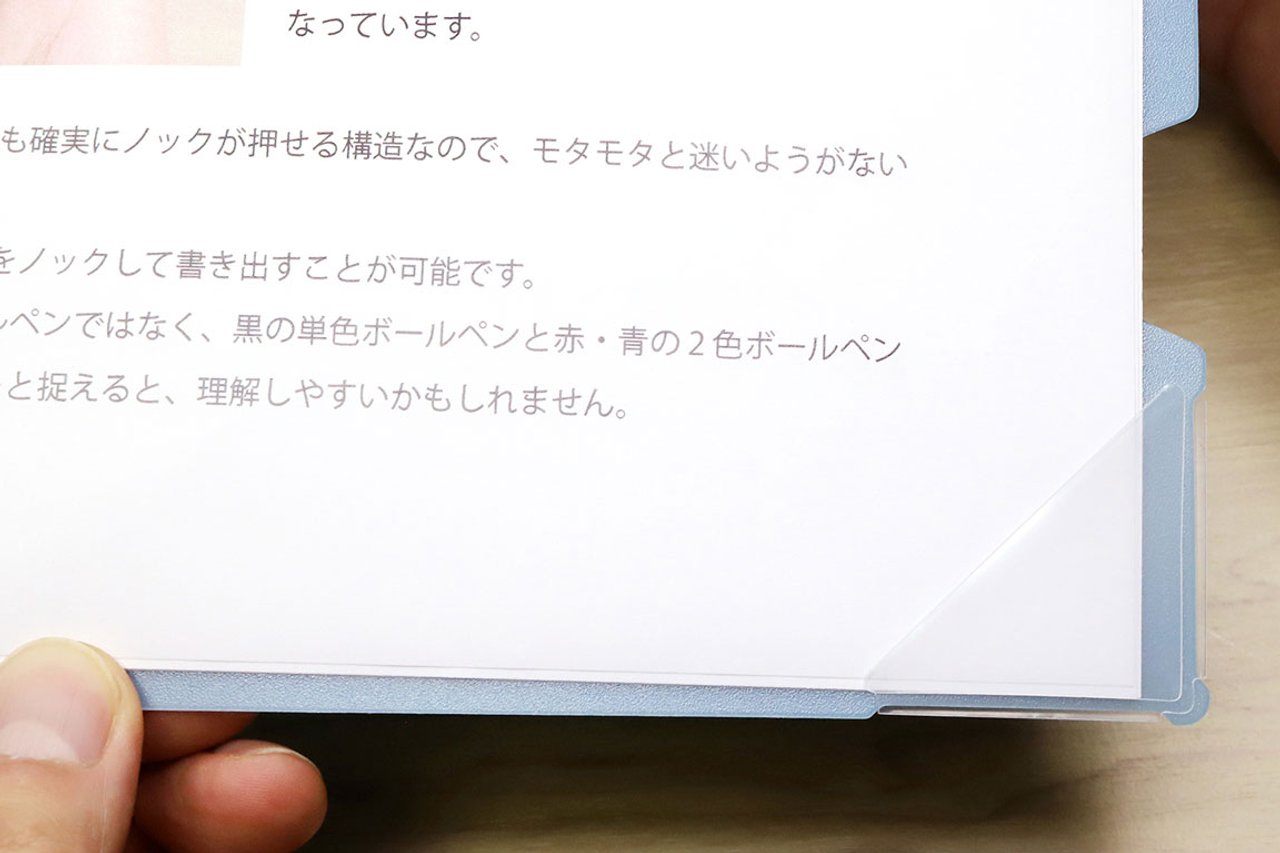 なっています。
も確実にノックが押せる構造なので、モタモタと迷いようがない
をノックして書き出すことが可能です。
ルペンではなく、黒の単色ボールペンと赤・青の２色ボールペン
と捉えると、理解しやすいかもしれません。